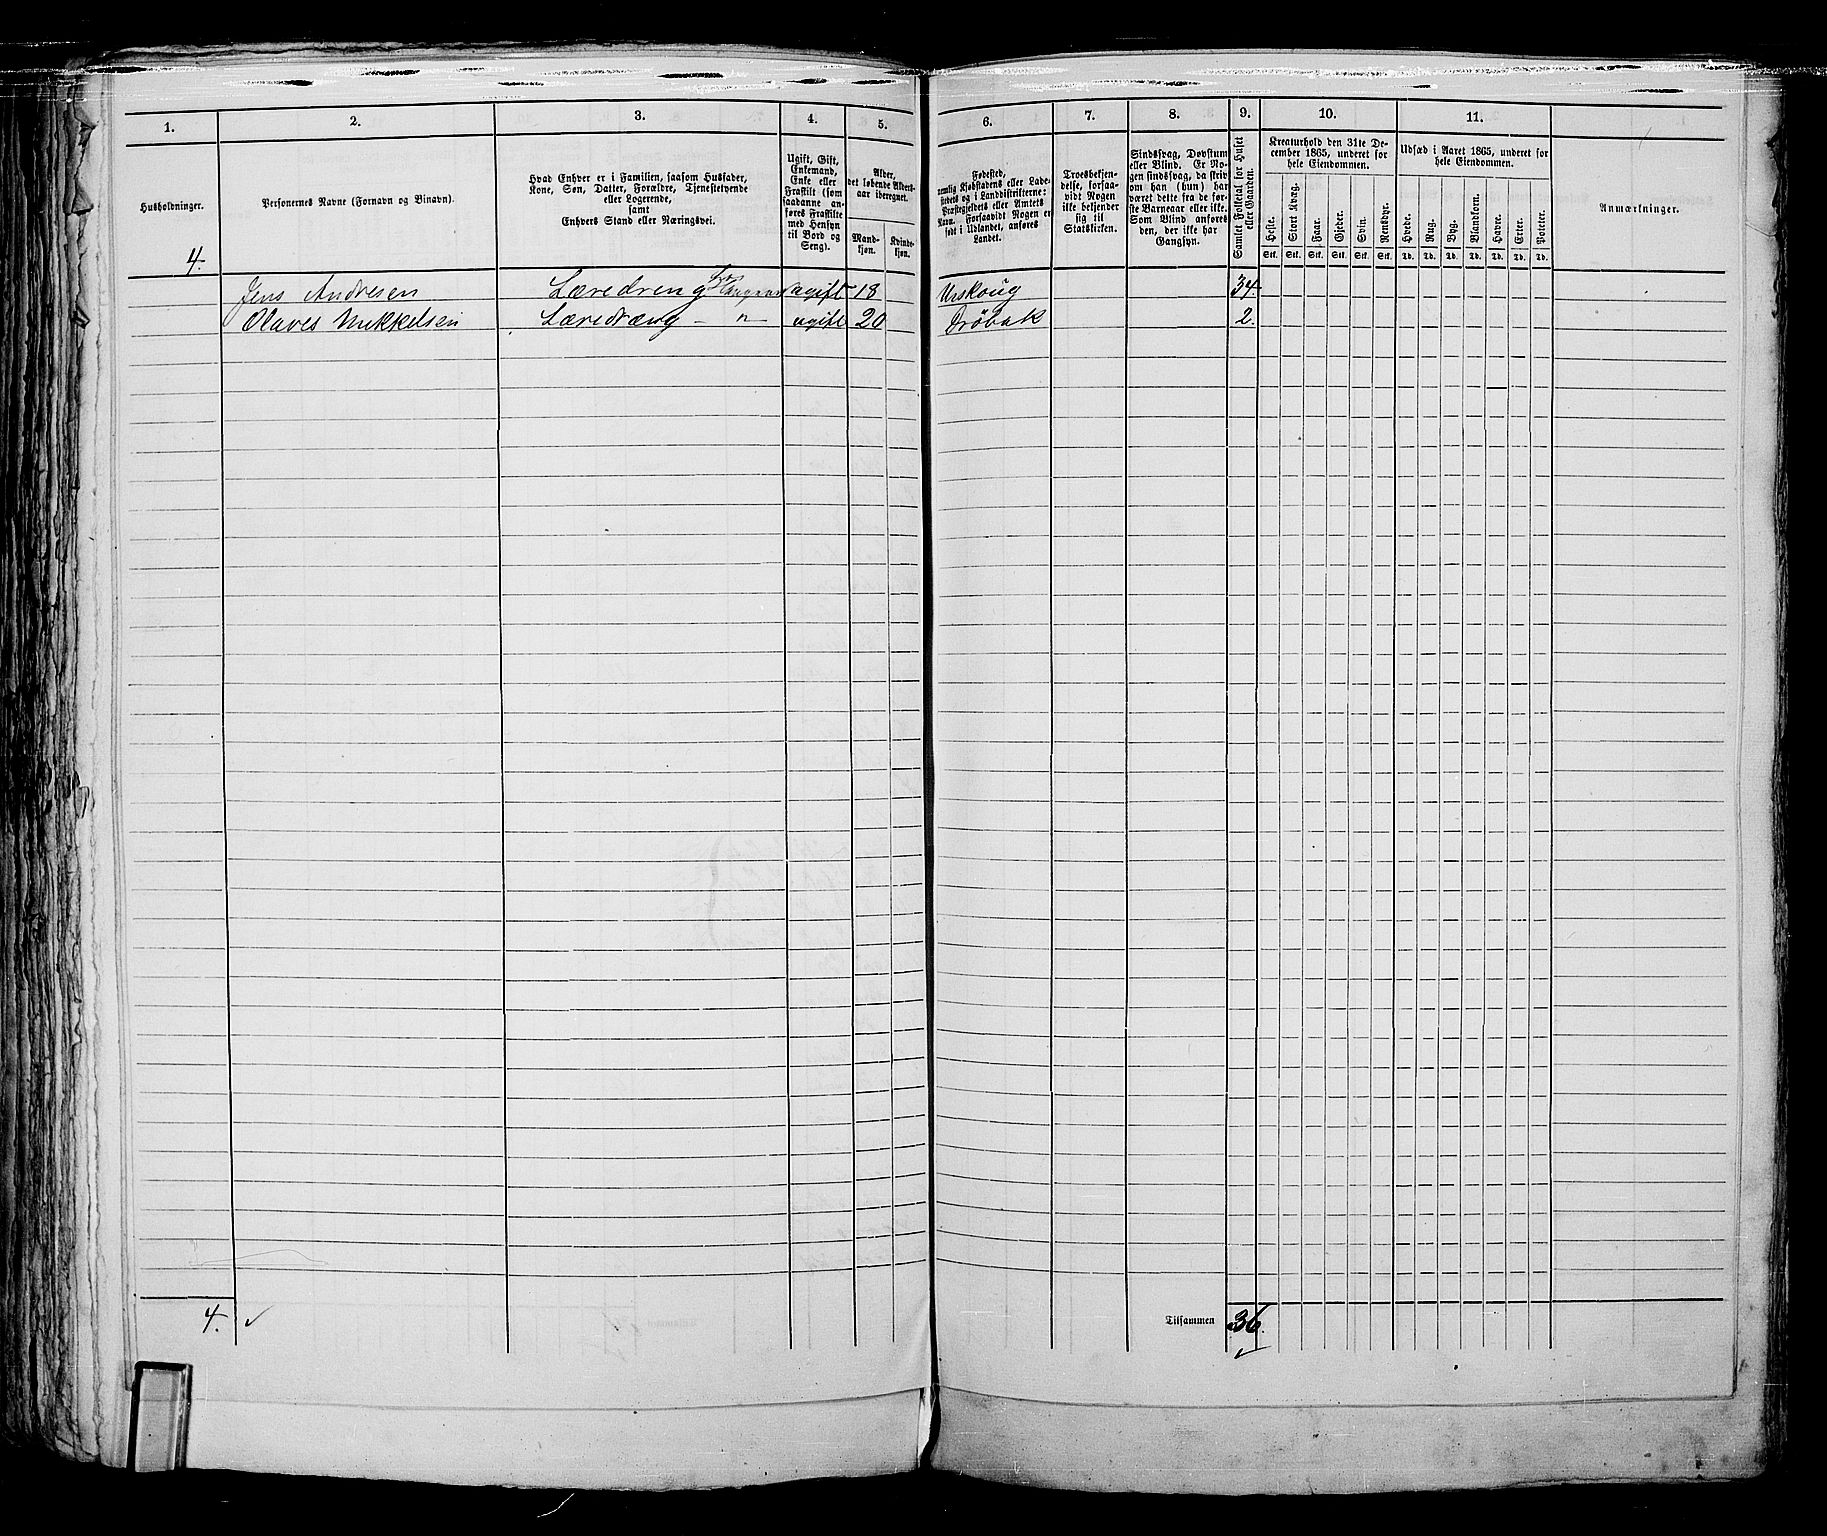 1. 2. 3. 4. 5. 6. 7. 8. 9. 10. 11.
Husholdninger.
4.
Personernes Navne (Fornavn og Binavn).
Hvad Enhver er i Familien, saasom Husfader,
Kone, Søn, Datter, Forældre, Tjenestetyende
eller Logerende,
samt
Enhvers Stand eller Næringsvei.
Ugift, Gift,
Enkemand,
Enke eller
Fraskilt (som
saadanne an-
føres Fraskilte
med Hensyn
til Bord og
Seng).
Alder,
det løbende Alders-
aar iberegnet.
Mand-
kjøn.
Kvinde-
kjøn.
Fødested,
nemlig Kjøbstadens eller Lade-
stedets og i Landdistrikterne:
Præstegjeldets eller Amtets
Navn. Forsaavidt Nogen er
født i Udlandet, anføres
Landet.
Troesbekjen-
delse, forsaa-
vidt Nogen
ikke bekjender
sig til
Statskirken.
Sindssvag, Døvstum
eller Blind. Er No-
gen sindssvag, da skriv
om han (hun) har
været dette fra de før-
ste Barneaar eller ikke.
Som Blind anføres
den, der ikke har
Gangsyn.
Samlet Folketal for Huset
eller Gaarden.
Kreaturhold den 31te De-
cember 1865, underet for
hele Eiendommen.
Heste. Stort Kvæg. Faar. Gjeder. Svin. Rensdyr.
Stk. Stk. Stk. Stk. Stk. Stk.
Udsæd i Aaret 1865, underet for
hele Eiendommen.
Hvede. Rug. Byg. Blandkorn. Havre. Erter. Poteter.
Td. Td. Td. Td. Td. Td. Td.
Anmærkninger.
Jens Andresen Læredreng ugift 18 Urskoug 34.
Olaves Mikkelsen Læredræng - " - ugift 20 Drøbak 2.
4. Tilsammen 36.